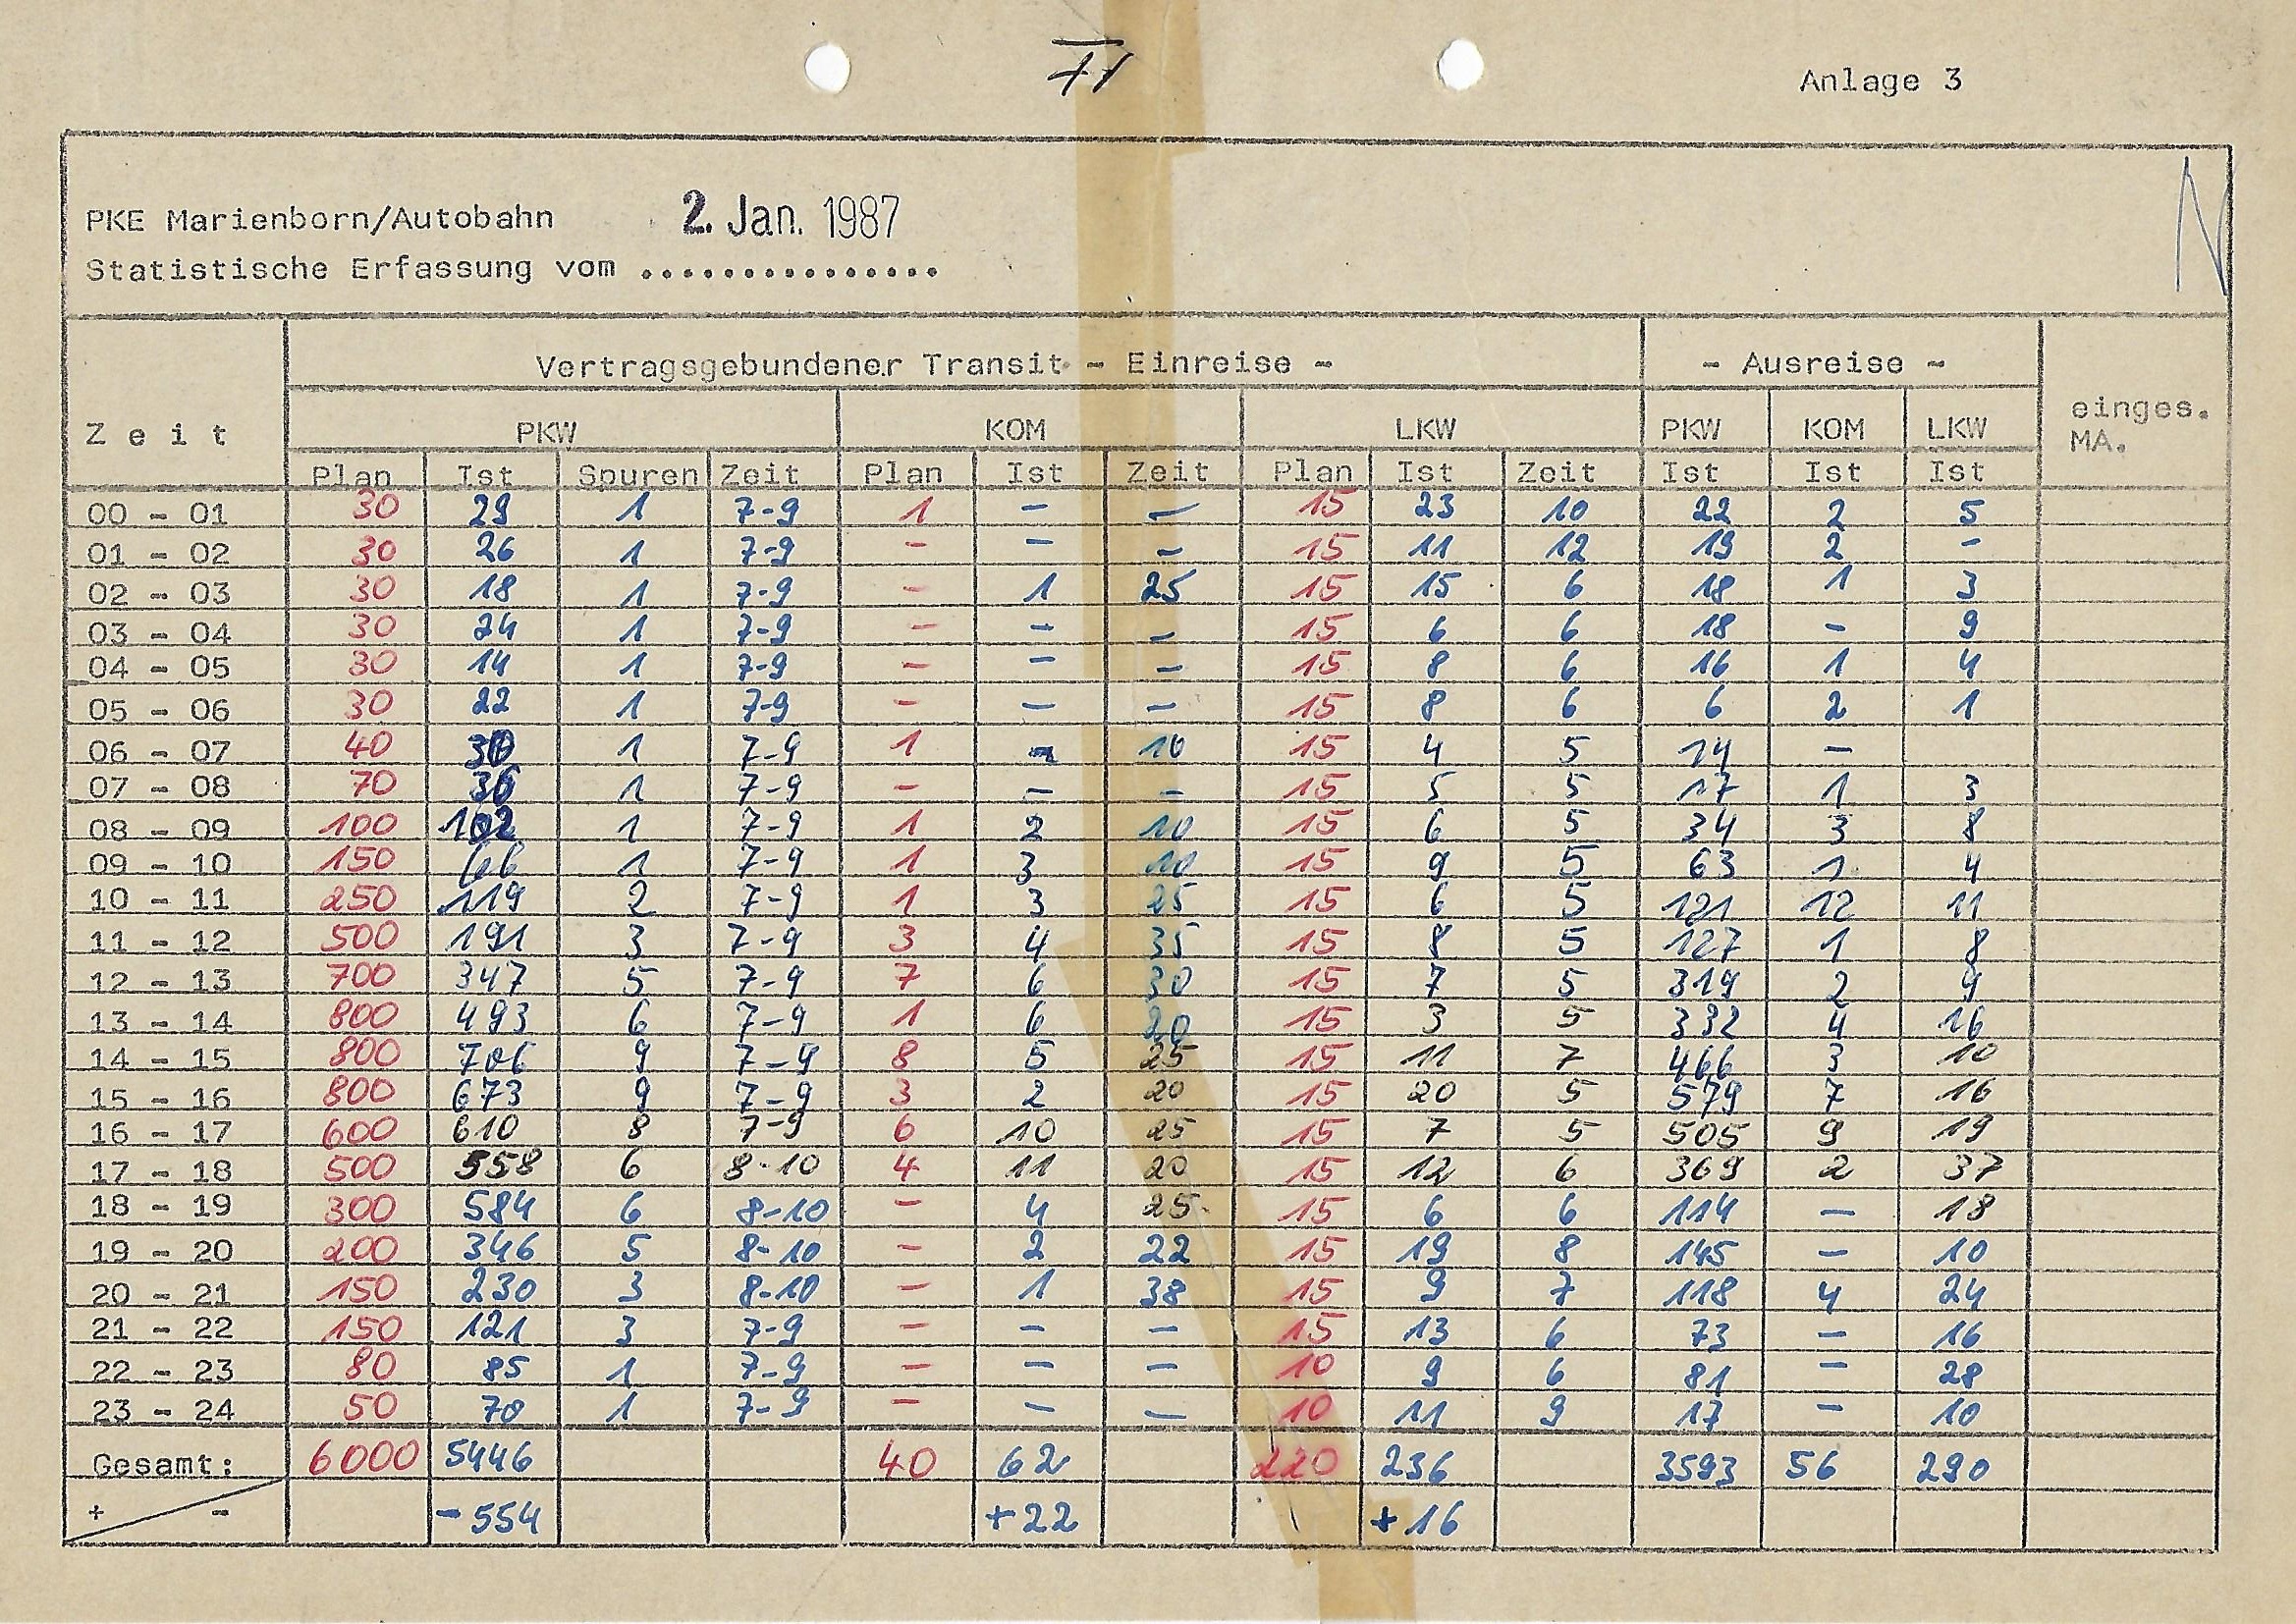 Anlage 3
PKE Marienborn/Autobahn 2. Jan. 1987
Statistische Erfassung vom ...............
Vertragsgebundener Transit - Einreise - - Ausreise -
Zeit PKW KOM LKW PKW KOM LKW einges. MA.
Plan Ist Spuren Zeit Plan Ist Zeit Plan Ist Zeit Ist Ist Ist
00 - 01 30 29 1 7-9 1 - - 15 23 10 22 2 5
01 - 02 30 26 1 7-9 - - - 15 11 12 19 2 -
02 - 03 30 18 1 7-9 - 1 25 15 15 6 18 1 3
03 - 04 30 24 1 7-9 - - - 15 6 6 18 - 9
04 - 05 30 14 1 7-9 - - - 15 8 6 16 1 4
05 - 06 30 22 1 7-9 - - - 15 8 6 6 2 1
06 - 07 40 30 1 7-9 1 - 10 15 4 5 14 -
07 - 08 70 36 1 7-9 - - - 15 5 5 17 1 3
08 - 09 100 102 1 7-9 1 2 10 15 6 5 34 3 8
09 - 10 150 66 1 7-9 1 3 10 15 9 5 63 1 4
10 - 11 250 119 2 7-9 1 3 25 15 6 5 121 12 11
11 - 12 500 191 3 7-9 3 4 35 15 8 5 127 1 8
12 - 13 700 347 5 7-9 7 6 30 15 7 5 319 2 9
13 - 14 800 493 6 7-9 1 6 20 15 3 5 332 4 16
14 - 15 800 706 9 7-9 8 5 25 15 11 7 466 3 10
15 - 16 800 673 9 7-9 3 2 20 15 20 5 579 7 16
16 - 17 600 610 8 7-9 6 10 25 15 7 5 505 9 19
17 - 18 500 558 6 8-10 4 11 20 15 12 6 369 2 37
18 - 19 300 584 6 8-10 - 4 25 15 6 6 114 - 18
19 - 20 200 346 5 8-10 - 2 22 15 19 8 145 - 10
20 - 21 150 230 3 8-10 - 1 38 15 9 7 118 4 24
21 - 22 150 121 3 7-9 - - - 15 13 6 73 - 16
22 - 23 80 85 1 7-9 - - - 10 9 6 81 - 28
23 - 24 50 70 1 7-9 - - - 10 11 9 17 - 10
Gesamt: 6000 5446 40 62 220 236 3593 56 290
+ - -554 +22 +16